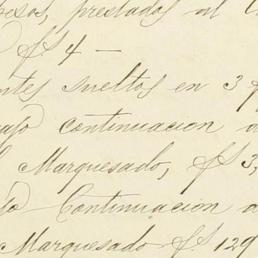 pesos, prestados al
fs 4 —
ntes sueltos en 3
continuacion a
Marquesado, fs 3,
Continuacion a
Marquesado fs. 129